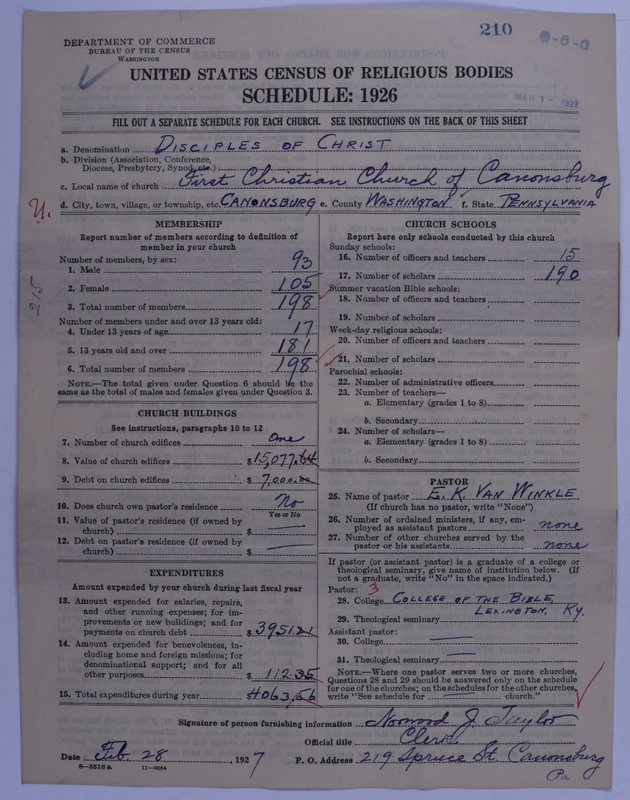 210
DEPARTMENT OF COMMERCE
BUREAU OF THE CENSUS
WASHINGTON
UNITED STATES CENSUS OF RELIGIOUS BODIES
SCHEDULE: 1926
MAR 1 - 1927
FILL OUT A SEPARATE SCHEDULE FOR EACH CHURCH. SEE INSTRUCTIONS ON THE BACK OF THIS SHEET
a. Denomination DISCIPLES OF CHRIST
b. Division (Association, Conference,
Diocese, Presbytery, Synod, etc.)
c. Local name of church First Christian Church of Canonsburg
d. City, town, village, or township, etc. CANONSBURG e. County WASHINGTON f. State PENNSYLVANIA
U.
215
MEMBERSHIP
Report number of members according to definition of
member in your church
Number of members, by sex:
1. Male 93
2. Female 105
3. Total number of members 198
Number of members under and over 13 years old:
4. Under 13 years of age 17
5. 13 years old and over 181
6. Total number of members 198
NOTE.—The total given under Question 6 should be the
same as the total of males and females given under Question 3.
CHURCH BUILDINGS
See instructions, paragraphs 10 to 12
7. Number of church edifices One
8. Value of church edifices $15,077.64
9. Debt on church edifices $7,000.00
10. Does church own pastor's residence No
Yes or No
11. Value of pastor's residence (if owned by
church) $
12. Debt on pastor's residence (if owned by
church) $
EXPENDITURES
Amount expended by your church during last fiscal year
13. Amount expended for salaries, repairs,
and other running expenses; for im-
provements or new buildings; and for
payments on church debt $3951.21
14. Amount expended for benevolences, in-
cluding home and foreign missions; for
denominational support; and for all
other purposes $112.35
15. Total expenditures during year 4063.56
CHURCH SCHOOLS
Report here only schools conducted by this church
Sunday schools:
16. Number of officers and teachers 15
17. Number of scholars 190
Summer vacation Bible schools:
18. Number of officers and teachers
19. Number of scholars
Week-day religious schools:
20. Number of officers and teachers
21. Number of scholars
Parochial schools:
22. Number of administrative officers
23. Number of teachers—
a. Elementary (grades 1 to 8)
b. Secondary
24. Number of scholars—
a. Elementary (grades 1 to 8)
b. Secondary
PASTOR
25. Name of pastor E. K. VAN WINKLE
(If church has no pastor, write "None")
26. Number of ordained ministers, if any, em-
ployed as assistant pastors none
27. Number of other churches served by the
pastor or his assistants none
If pastor (or assistant pastor) is a graduate of a college or
theological seminary, give name of institution below. (If
not a graduate, write "No" in the space indicated.)
Pastor: 3
28. College COLLEGE OF THE BIBLE,
LEXINGTON, KY.
29. Theological seminary
Assistant pastor:
30. College
31. Theological seminary
NOTE.—Where one pastor serves two or more churches,
Questions 28 and 29 should be answered only on the schedule
for one of the churches; on the schedules for the other churches,
write "See schedule for church."
Signature of person furnishing information Norwood J. Taylor
Official title Clerk
Date Feb. 28, 1927 P. O. Address 219 Spruce St. Canonsburg
Pa
8-5518a 11-9254